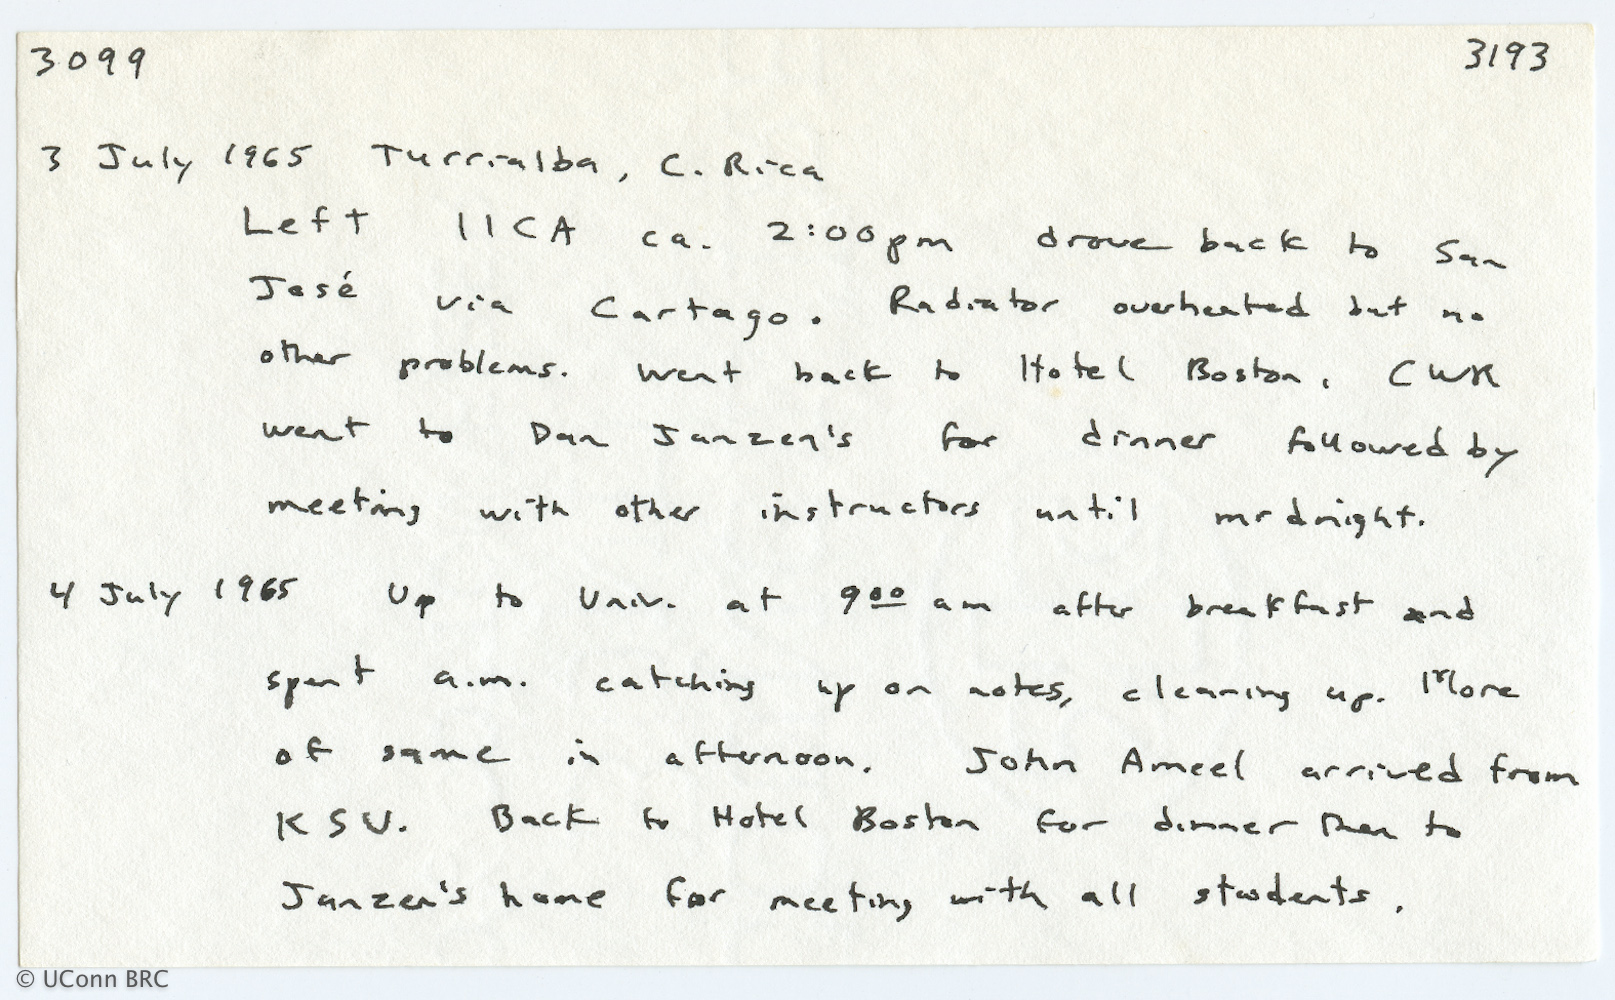 3099 3193
3 July 1965 Turrialba, C. Rica
Left IICA ca. 2:00pm drove back to San
José via Cartago. Radiator overheated but no
other problems. Went back to Hotel Boston. CWR
went to Dan Janzen's for dinner followed by
meeting with other instructors until midnight.
4 July 1965 Up to Univ. at 9 00 am after breakfast and
spent a.m. catching up on notes, cleaning up. More
of same in afternoon. John Ameel arrived from
KSU. Back to Hotel Boston for dinner then to
Janzen's home for meeting with all students.
© UConn BRC